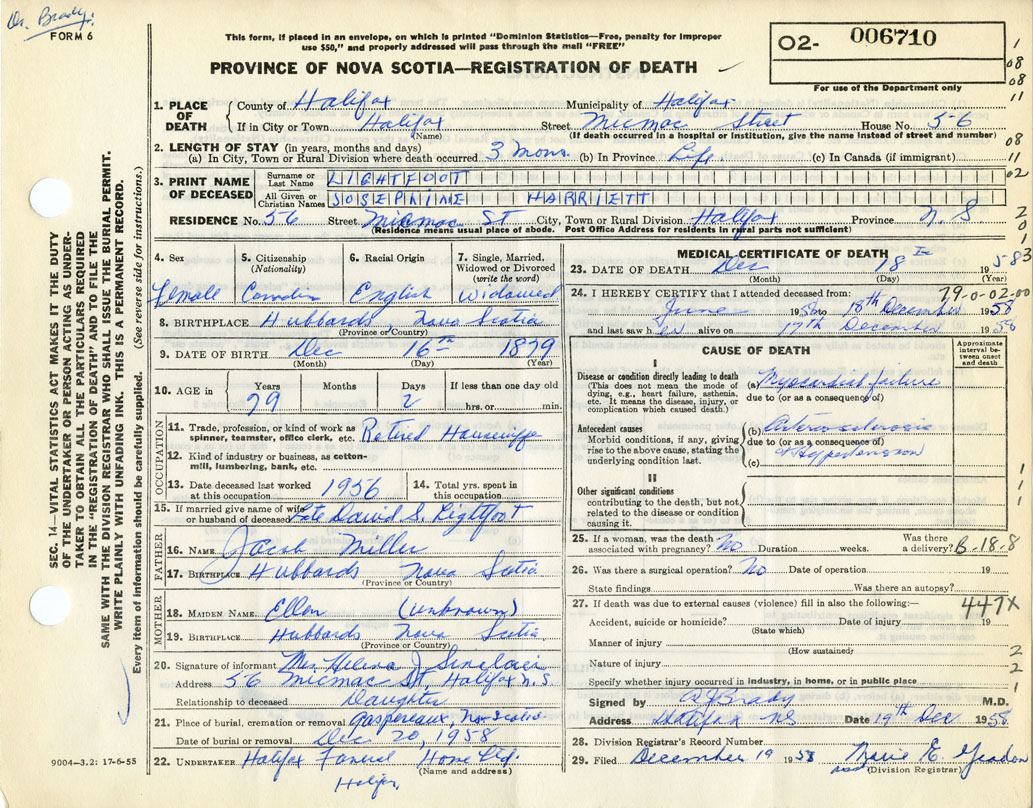 Dr. Brady.
FORM 6
This form, if placed in an envelope, on which is printed "Dominion Statistics—Free, penalty for improper
use $50," and properly addressed will pass through the mail "FREE"
PROVINCE OF NOVA SCOTIA—REGISTRATION OF DEATH
O2- 006710
For use of the Department only
1
08
08
11
08
11
02
2
0
1
3
1. PLACE OF DEATH County of Halifax Municipality of Halifax
If in City or Town Halifax Street Micmac Street House No. 56
(Name) (If death occurred in a hospital or institution, give the name instead of street and number)
2. LENGTH OF STAY (in years, months and days)
(a) In City, Town or Rural Division where death occurred 3 Mons. (b) In Province Life (c) In Canada (if immigrant)
3. PRINT NAME OF DECEASED Surname or Last Name LIGHTFOOT
All Given or Christian Names JOSEPHINE HARRIETT
RESIDENCE No. 56 Street Micmac St City, Town or Rural Division Halifax Province N.S.
(Residence means usual place of abode. Post Office Address for residents in rural parts not sufficient)
4. Sex
female
5. Citizenship
(Nationality)
6. Racial Origin
English
7. Single, Married,
Widowed or Divorced
(write the word)
Widowed
8. BIRTHPLACE Hubbards Nova Scotia
(Province or Country)
9. DATE OF BIRTH Dec 16th 1879
(Month) (Day) (Year)
10. AGE in Years Months Days If less than one day old
79 2 hrs. or min.
OCCUPATION
11. Trade, profession, or kind of work as
spinner, teamster, office clerk, etc. Retired Housewife
12. Kind of industry or business, as cotton-
mill, lumbering, bank, etc.
13. Date deceased last worked
at this occupation 1956
14. Total yrs. spent in
this occupation
15. If married give name of wife
or husband of deceased Late David S. Lightfoot
FATHER
16. NAME Jacob Miller
17. BIRTHPLACE Hubbards Nova Scotia
(Province or Country)
MOTHER
18. MAIDEN NAME Ellen (unknown)
19. BIRTHPLACE Hubbards Nova Scotia
(Province or Country)
20. Signature of informant Mrs Helena J Sinclair
Address 56 Micmac St, Halifax N.S
Relationship to deceased Daughter
21. Place of burial, cremation or removal Gaspereaux, Nova Scotia
Date of burial or removal Dec 20, 1958
22. UNDERTAKER Halifax Funeral Home Ltd.
(Name and address)
Halifax
MEDICAL CERTIFICATE OF DEATH
23. DATE OF DEATH Dec 18 1958
(Month) (Day) (Year)
79-0-02-00
24. I HEREBY CERTIFY that I attended deceased from:
June 1958 to 18th December 1958
and last saw her alive on 17th December 1958
CAUSE OF DEATH
Approximate
interval be-
tween onset
and death
I
Disease or condition directly leading to death
(This does not mean the mode of
dying, e.g., heart failure, asthenia,
etc. It means the disease, injury, or
complication which caused death.)
(a) Myocardial failure
due to (or as a consequence of)
Antecedent causes
Morbid conditions, if any, giving
rise to the above cause, stating the
underlying condition last.
(b) Arteriosclerosis
due to (or as a consequence of)
+ Hypertension
(c)
II
Other significant conditions
contributing to the death, but not
related to the disease or condition
causing it.
1
1
1
25. If a woman, was the death
associated with pregnancy? No Duration weeks. Was there
a delivery? B-18-8
26. Was there a surgical operation? No Date of operation 19
State findings Was there an autopsy?
27. If death was due to external causes (violence) fill in also the following:— 447X
Accident, suicide or homicide? Date of injury 19
(State which)
Manner of injury
(How sustained)
Nature of injury
Specify whether injury occurred in industry, in home, or in public place
2
2
1
Signed by Brady M.D.
Address Halifax NS Date 19th Dec 1958
28. Division Registrar's Record Number
29. Filed December 19 1958 Marie E.
(Division Registrar)
SEC. 14—VITAL STATISTICS ACT MAKES IT THE DUTY
OF THE UNDERTAKER OR PERSON ACTING AS UNDER-
TAKER TO OBTAIN ALL THE PARTICULARS REQUIRED
IN THE "REGISTRATION OF DEATH" AND TO FILE THE
SAME WITH THE DIVISION REGISTRAR WHO SHALL ISSUE THE BURIAL PERMIT.
WRITE PLAINLY WITH UNFADING INK. THIS IS A PERMANENT RECORD.
Every item of information should be carefully supplied. (See reverse side for instructions.)
9004—3.2: 17-6-55